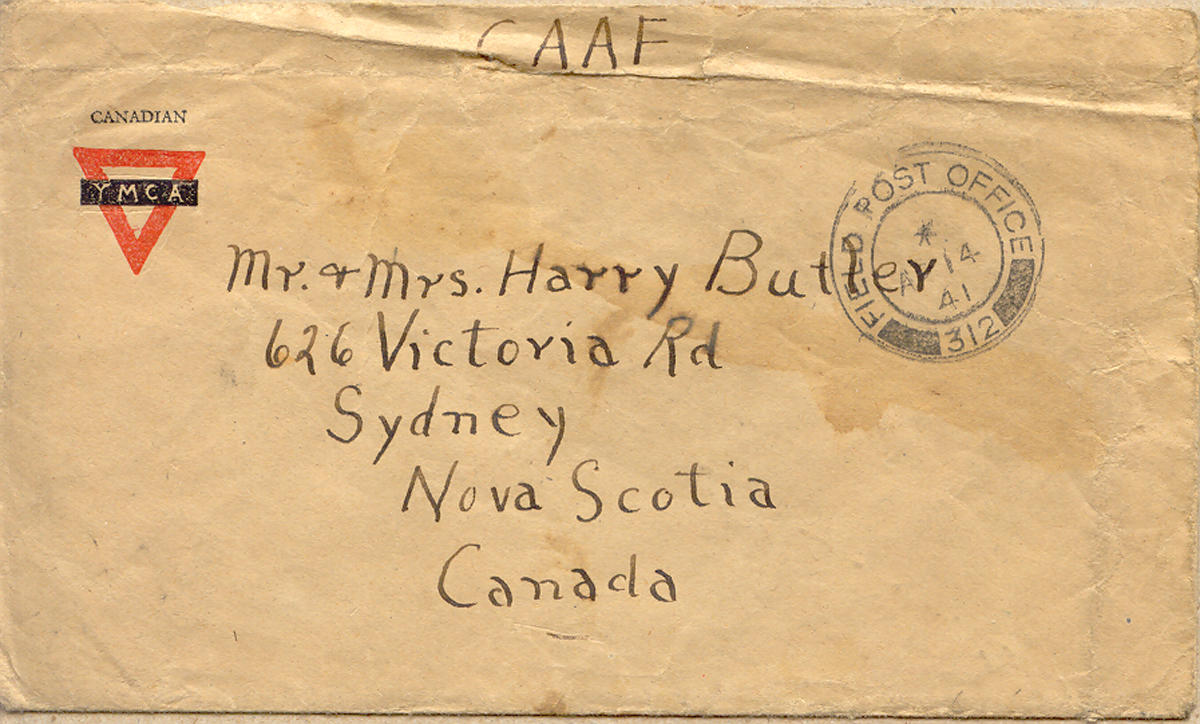 CAAF
CANADIAN
YMCA
FIELD POST OFFICE
*
AP 14
41
312
Mr. & Mrs. Harry Butler
626 Victoria Rd
Sydney
Nova Scotia
Canada